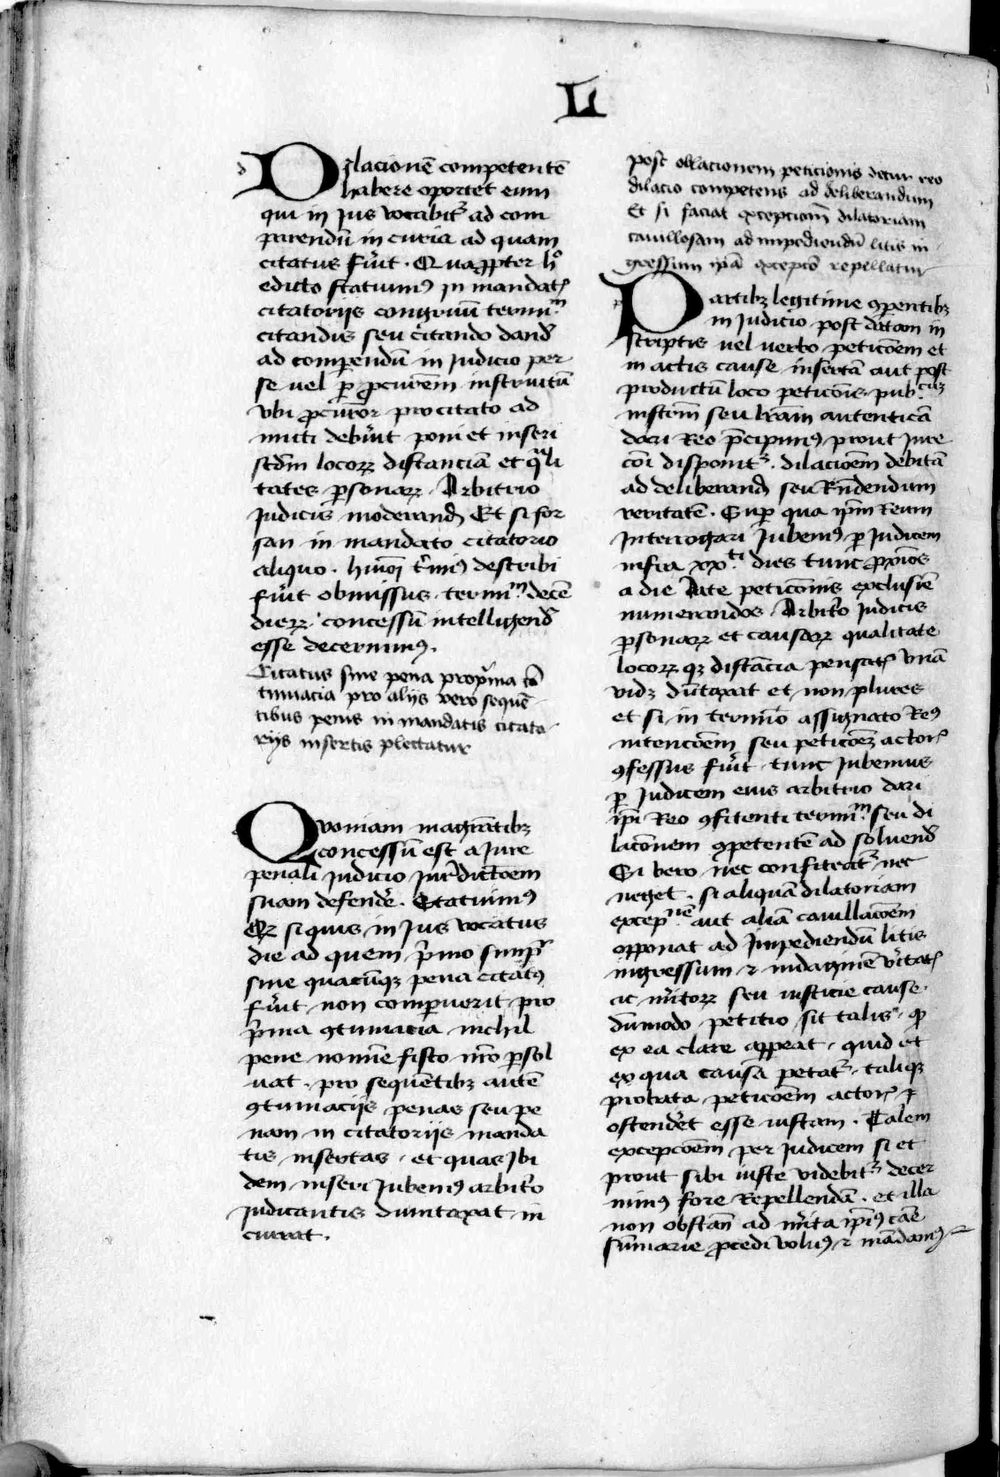 LI
Dilacionē competentē
habere oportet eum
qui in Jus vocabit᷑ ad com
parendū in curia ad quam
citatus fu͛it · Quapp̱ter h°
edicto statuimꝰ in mandat᷑
citatorijs congruū termin᷑ᵐ
citandis seu citando dand̄
ad comꝑendū in Judicio per
se vel ꝑ ꝓcur̄em instruitū
vbi ꝓcur̄or pro citato ad
mitti debu͛it poni et inseri
scd̄m locoꝝ distanciā et qͣli
tates ꝑsonaꝝ · Arbitrio
Judicis moderand̄ Et si for
san in mandato citatorio
aliquo · hmōi t͛minꝰ describi
fu͛it obmissus · terminᵐ decē
dieꝝ · concessū intelligend̄
esse decernimꝰ ·
Citatus sine pena prop͛ima cō
tumacia pro alijs vero sequē
tibus penis in mandatis citato
rijs insertis plectatur
Qvoniam magr̄atibꝫ
concessū est a Jure
penali Judicio Jurꝰdictōem
suam defender̄ · Statuimꝰ
Qꝫ si quis in Jus vocatus
die ad quem p͛mo simp͛r
sine quacūqꝫ pena citatꝰ
fu͛it non comꝑuerit pro
p͛ma ꝯtumacia nichil
pene nomīe fisco nr̄o ꝑsol
uat · pro sequētibꝫ autē
ꝯtumacijs penas seu pe
nam in citatorijs manda
tis insertas · et quas Jbi
dem inseri Jubemꝰ arbit͛o
Judicantis dumtaxat in
currat ·
post oblacionem peticionis detur reo
dilacio competens ad deliberandum
Et si faciat excepcionē dilatoriam
cauillosam ad impediendū litis in
gressum ip̄a excepcō repellatur
Partibꝫ legitime ꝯꝑentibꝫ
in Judicio post datam in
scriptis vel verbo peticōem et
in actis cause insertā aut post
productū loco peticōis pub.ᶜᵘᵐ
instrm̄ seu lr̄am autenticā
dari Reo p̄cipimꝰ prout Jure
cōi disponit᷑ · dilacōem debitā
ad deliberand̄ seu Rn̄dendum
veritatē · Suꝑ qua ip̄m Reum
Interrogari Jubemꝰ ꝑ Judicem
infra xxᵗⁱ dies tunc ꝓxīos
a die date peticōnis exclusiē
numerandos · Arbit͛o Judicis
ꝑsonaꝝ et causaꝝ qualitate
locoꝝ qꝫ distācia pensat᷑ vnā
vidꝫ dūtaxat et non plures
et si in termīo assignato Reꝰ
intencōem seu peticōeꝫ actor᷑
ꝯfessus fu͛it · tunc Jubemus
ꝑ Judicem eius arbitrio dari
ip̄i Reo ꝯfitenti terminᵐ seu di
lacōnem ꝯpetentē ad soluend̄
Si vero nec confiteat᷑ nec
neget · si aliquā dilatoriam
excepᵒⁿᵉ aut aliā cauillacōem
opponat ad Impediendū litis
ingressum ⁊ indaginē v͛itat᷑
ac m͛itoꝝ seu iusticie cause ·
dūmodo petitio sit talis · ꝙ
ex ea clare appeat · quid et
ex qua causa petat᷑ · taliqꝫ
probata peticōem actor᷑
ostender̄t esse iustam · Talem
excepcōem per Judicem si et
prout sibi iuste videbit᷑ decer
nimꝰ fore Repellendā · et illa
non obstan̄ ad m͛ita ip̄iꝰ cāe
sūmarie ꝓcedi volumꝰ ⁊ mādamꝰ